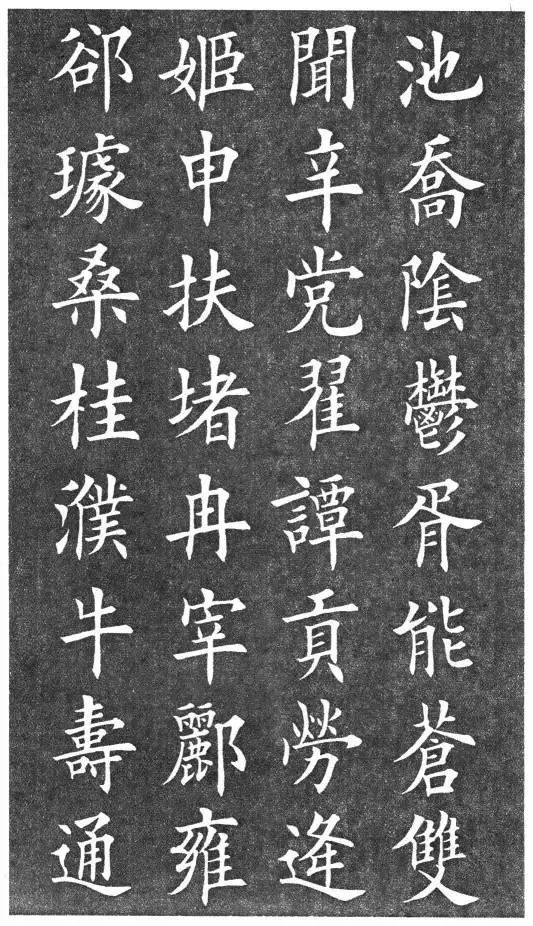 池喬陰鬱胥能蒼雙
聞莘党翟譚貢勞逄
姬申扶堵冉宰酈雍
郤璩桑桂濮牛壽通